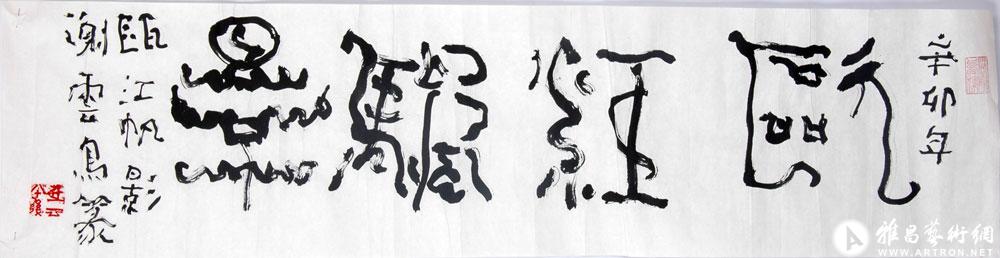 辛卯年
甌江帆影
甌江帆影
謝雲鳥篆
雅昌藝術網
WWW.ARTRON.NET